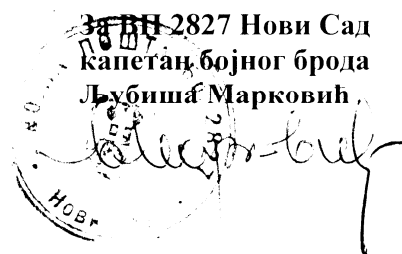 За ВП 2827 Нови Сад
капетан бојног брода
Љубиша Марковић